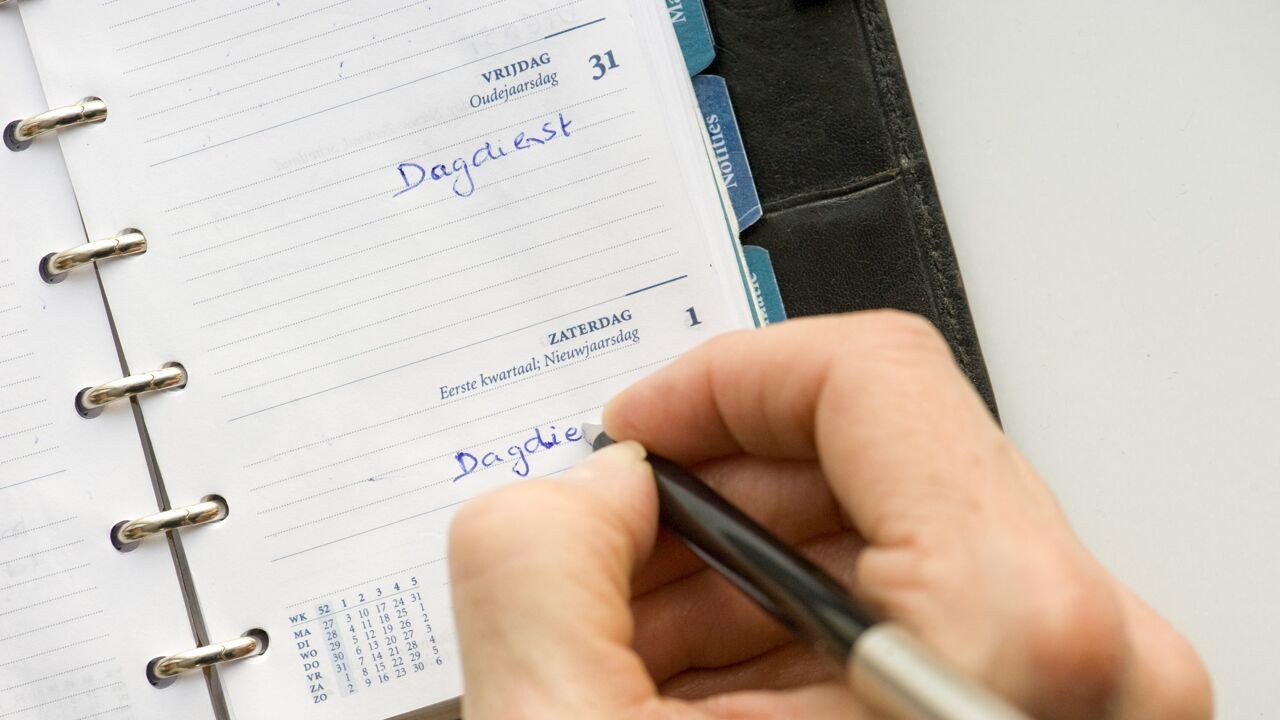 Ma
VRIJDAG 31
Oudejaarsdag
Dagdienst
Notities
ZATERDAG 1
Eerste kwartaal; Nieuwjaarsdag
Dagdie
WK 52 1 2 3 4 5
MA 27 3 10 17 24 31
DI 28 4 11 18 25 1
WO 29 5 12 19 26 2
DO 30 6 13 20 27 3
VR 31 7 14 21 28 4
ZA 1 8 15 22 29 5
ZO 2 9 16 23 30 6